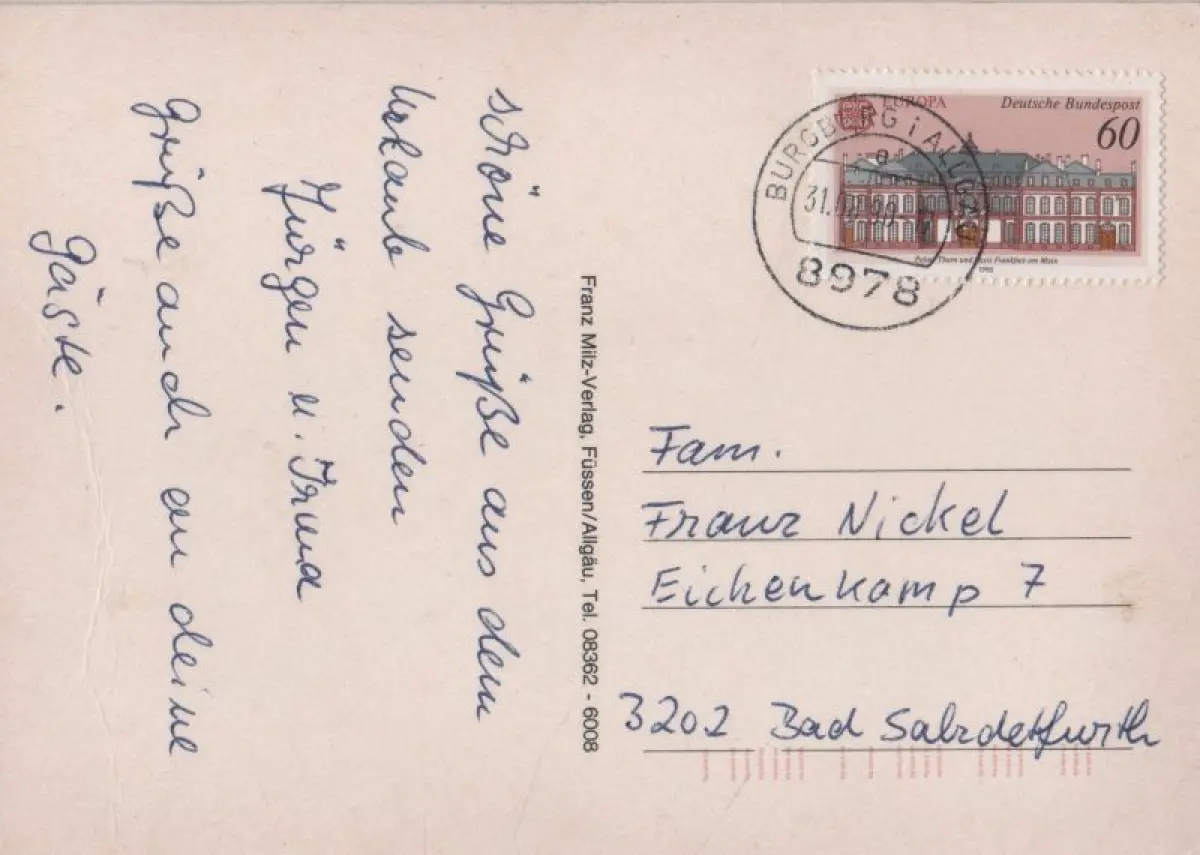 schöne Grüße aus dem
Urlaub senden
Jürgen u. Irma
Grüße auch an deine
Gäste.
Franz Milz-Verlag, Füssen/Allgäu, Tel. 08362 - 6008
EUROPA
Deutsche Bundespost
60
Thurn und Taxis Frankfurt am Main
1990
BURGBERG i ALLGÄU
31. 90
8978
Fam.
Franz Nickel
Eichenkamp 7
3202 Bad Salzdetfurth